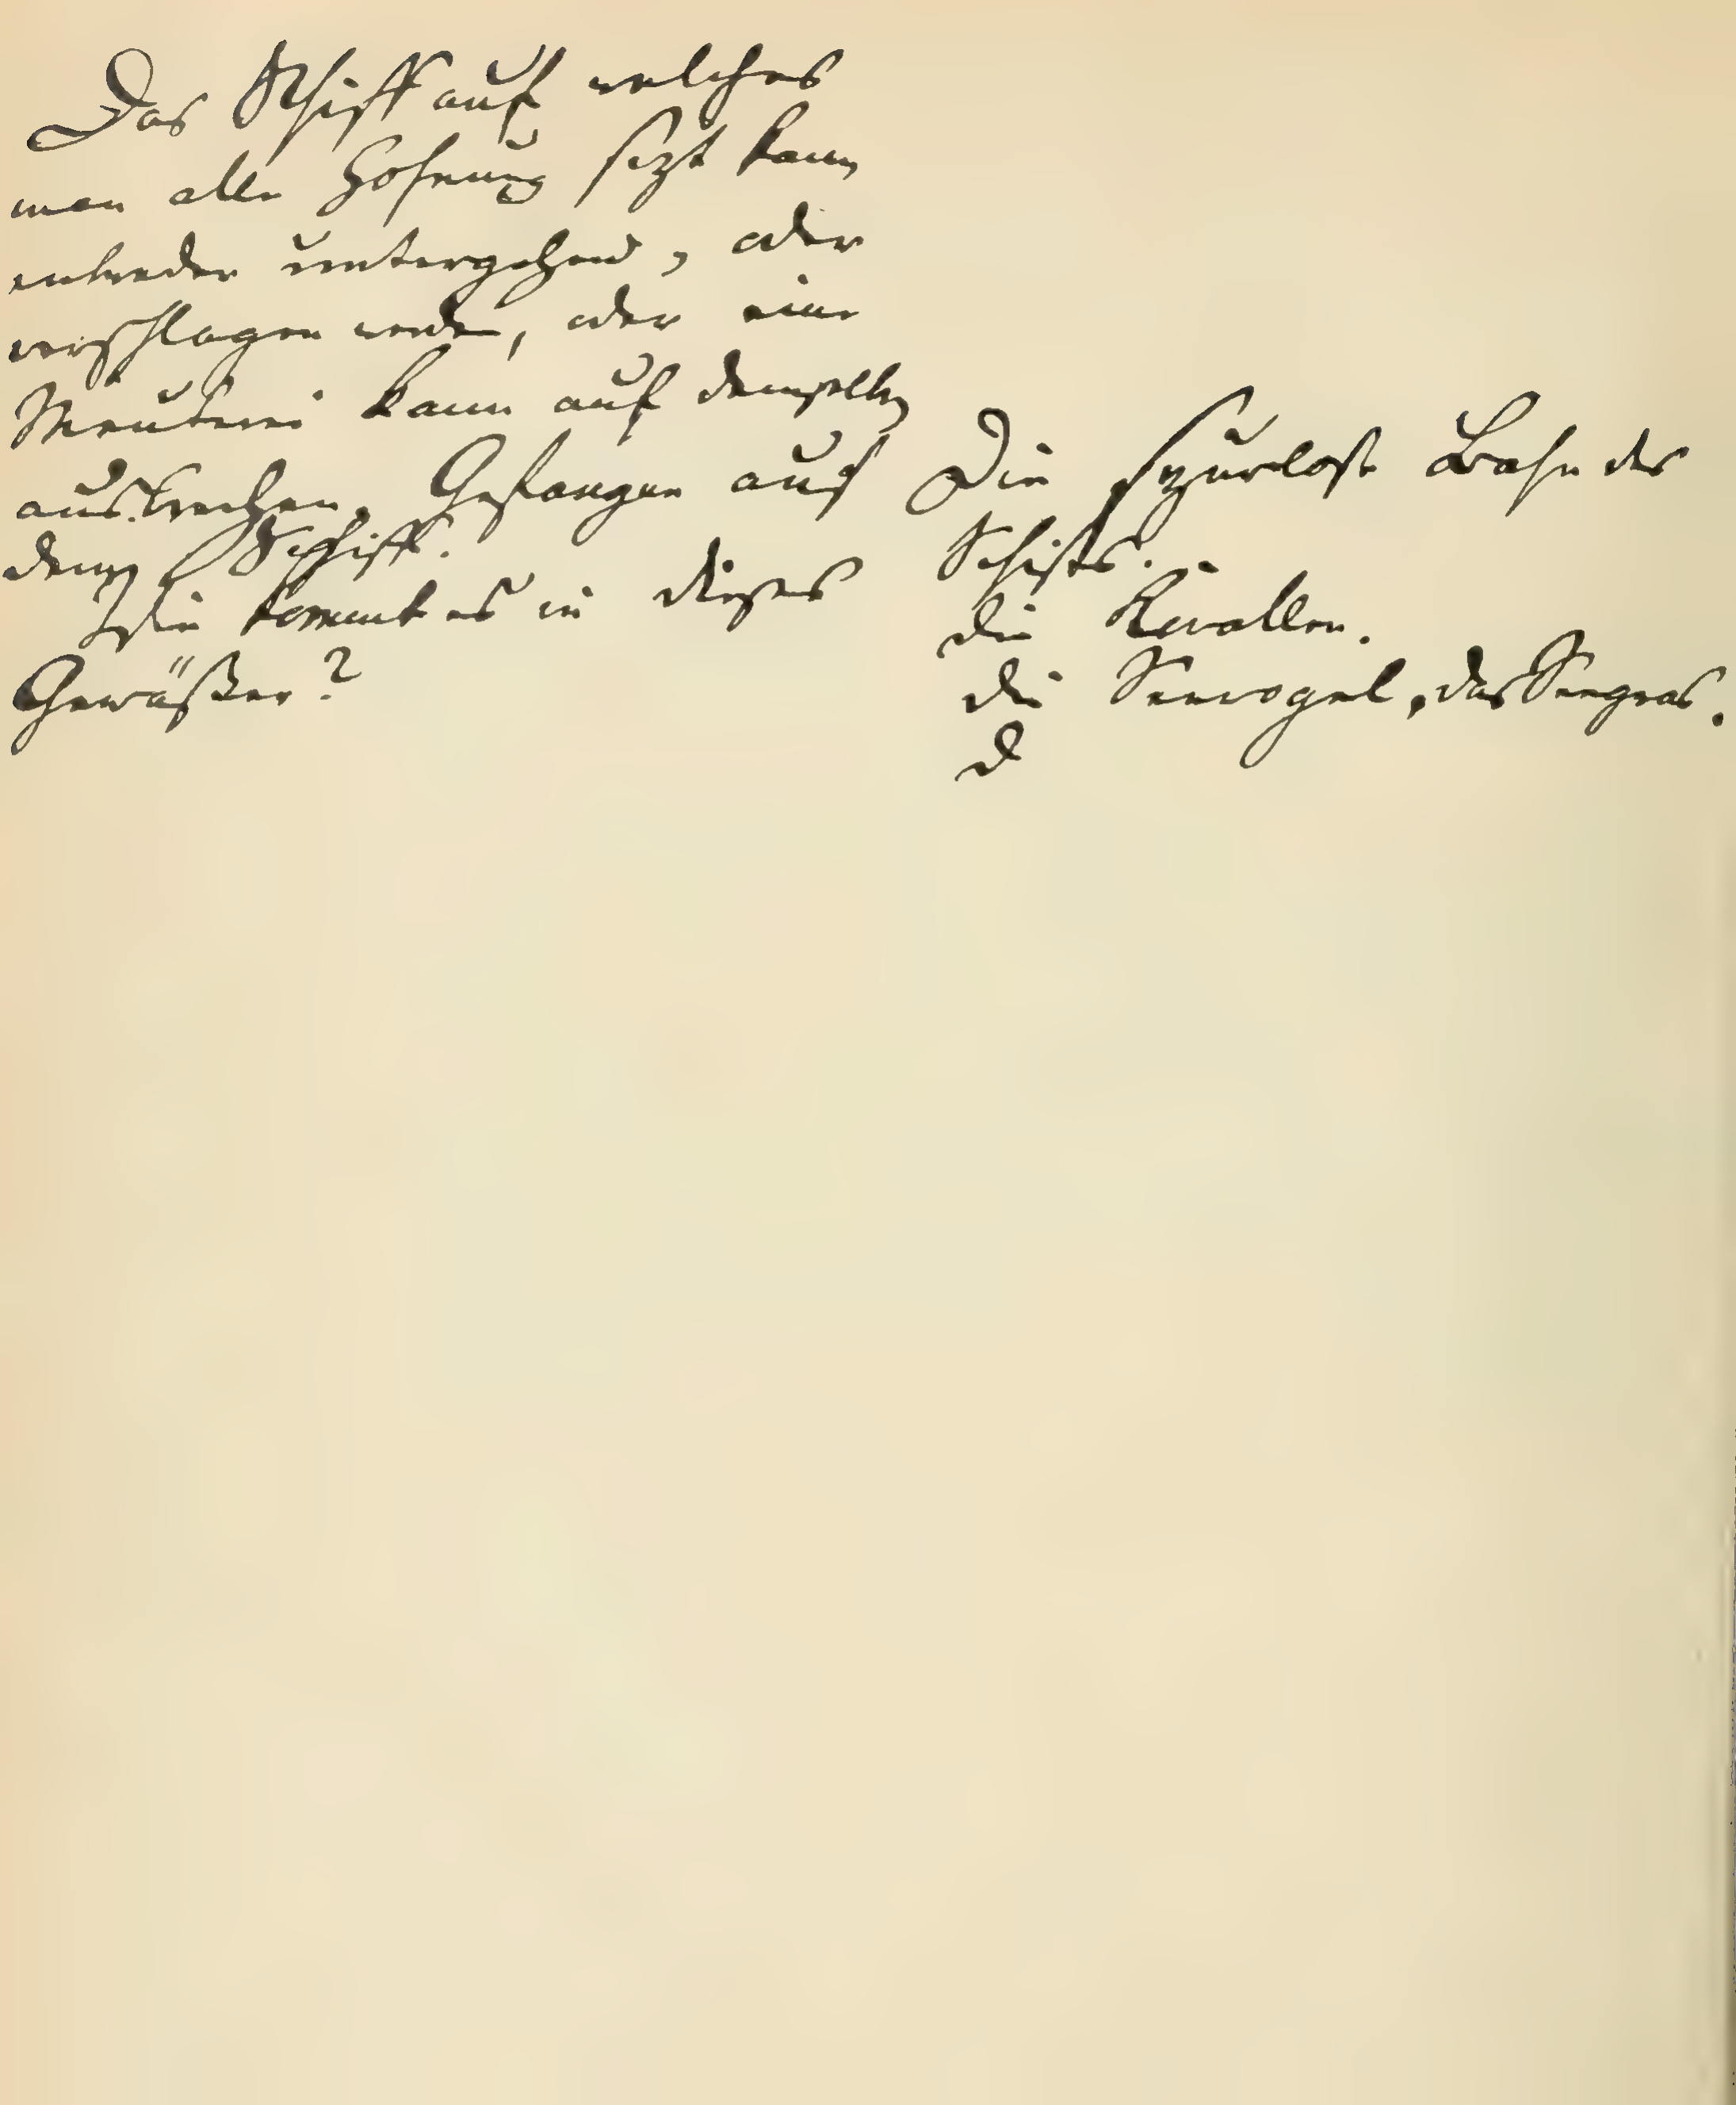 Das Schiff auf welches
man alle Hofnung sezt kann
entweder untergehen, oder
verschlagen werden, oder eine
Meuterei kann auf demselben
ausbrechen. Gefangen auf
dem Schiff.
Wie kommt es in dieses
Gewäßer?
Die spurlose Bahn des
Schiffs.
die Korallen.
die Seevogel, das Seegras.
d